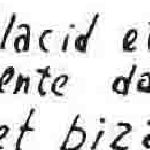 lacid et
ente da
et biza